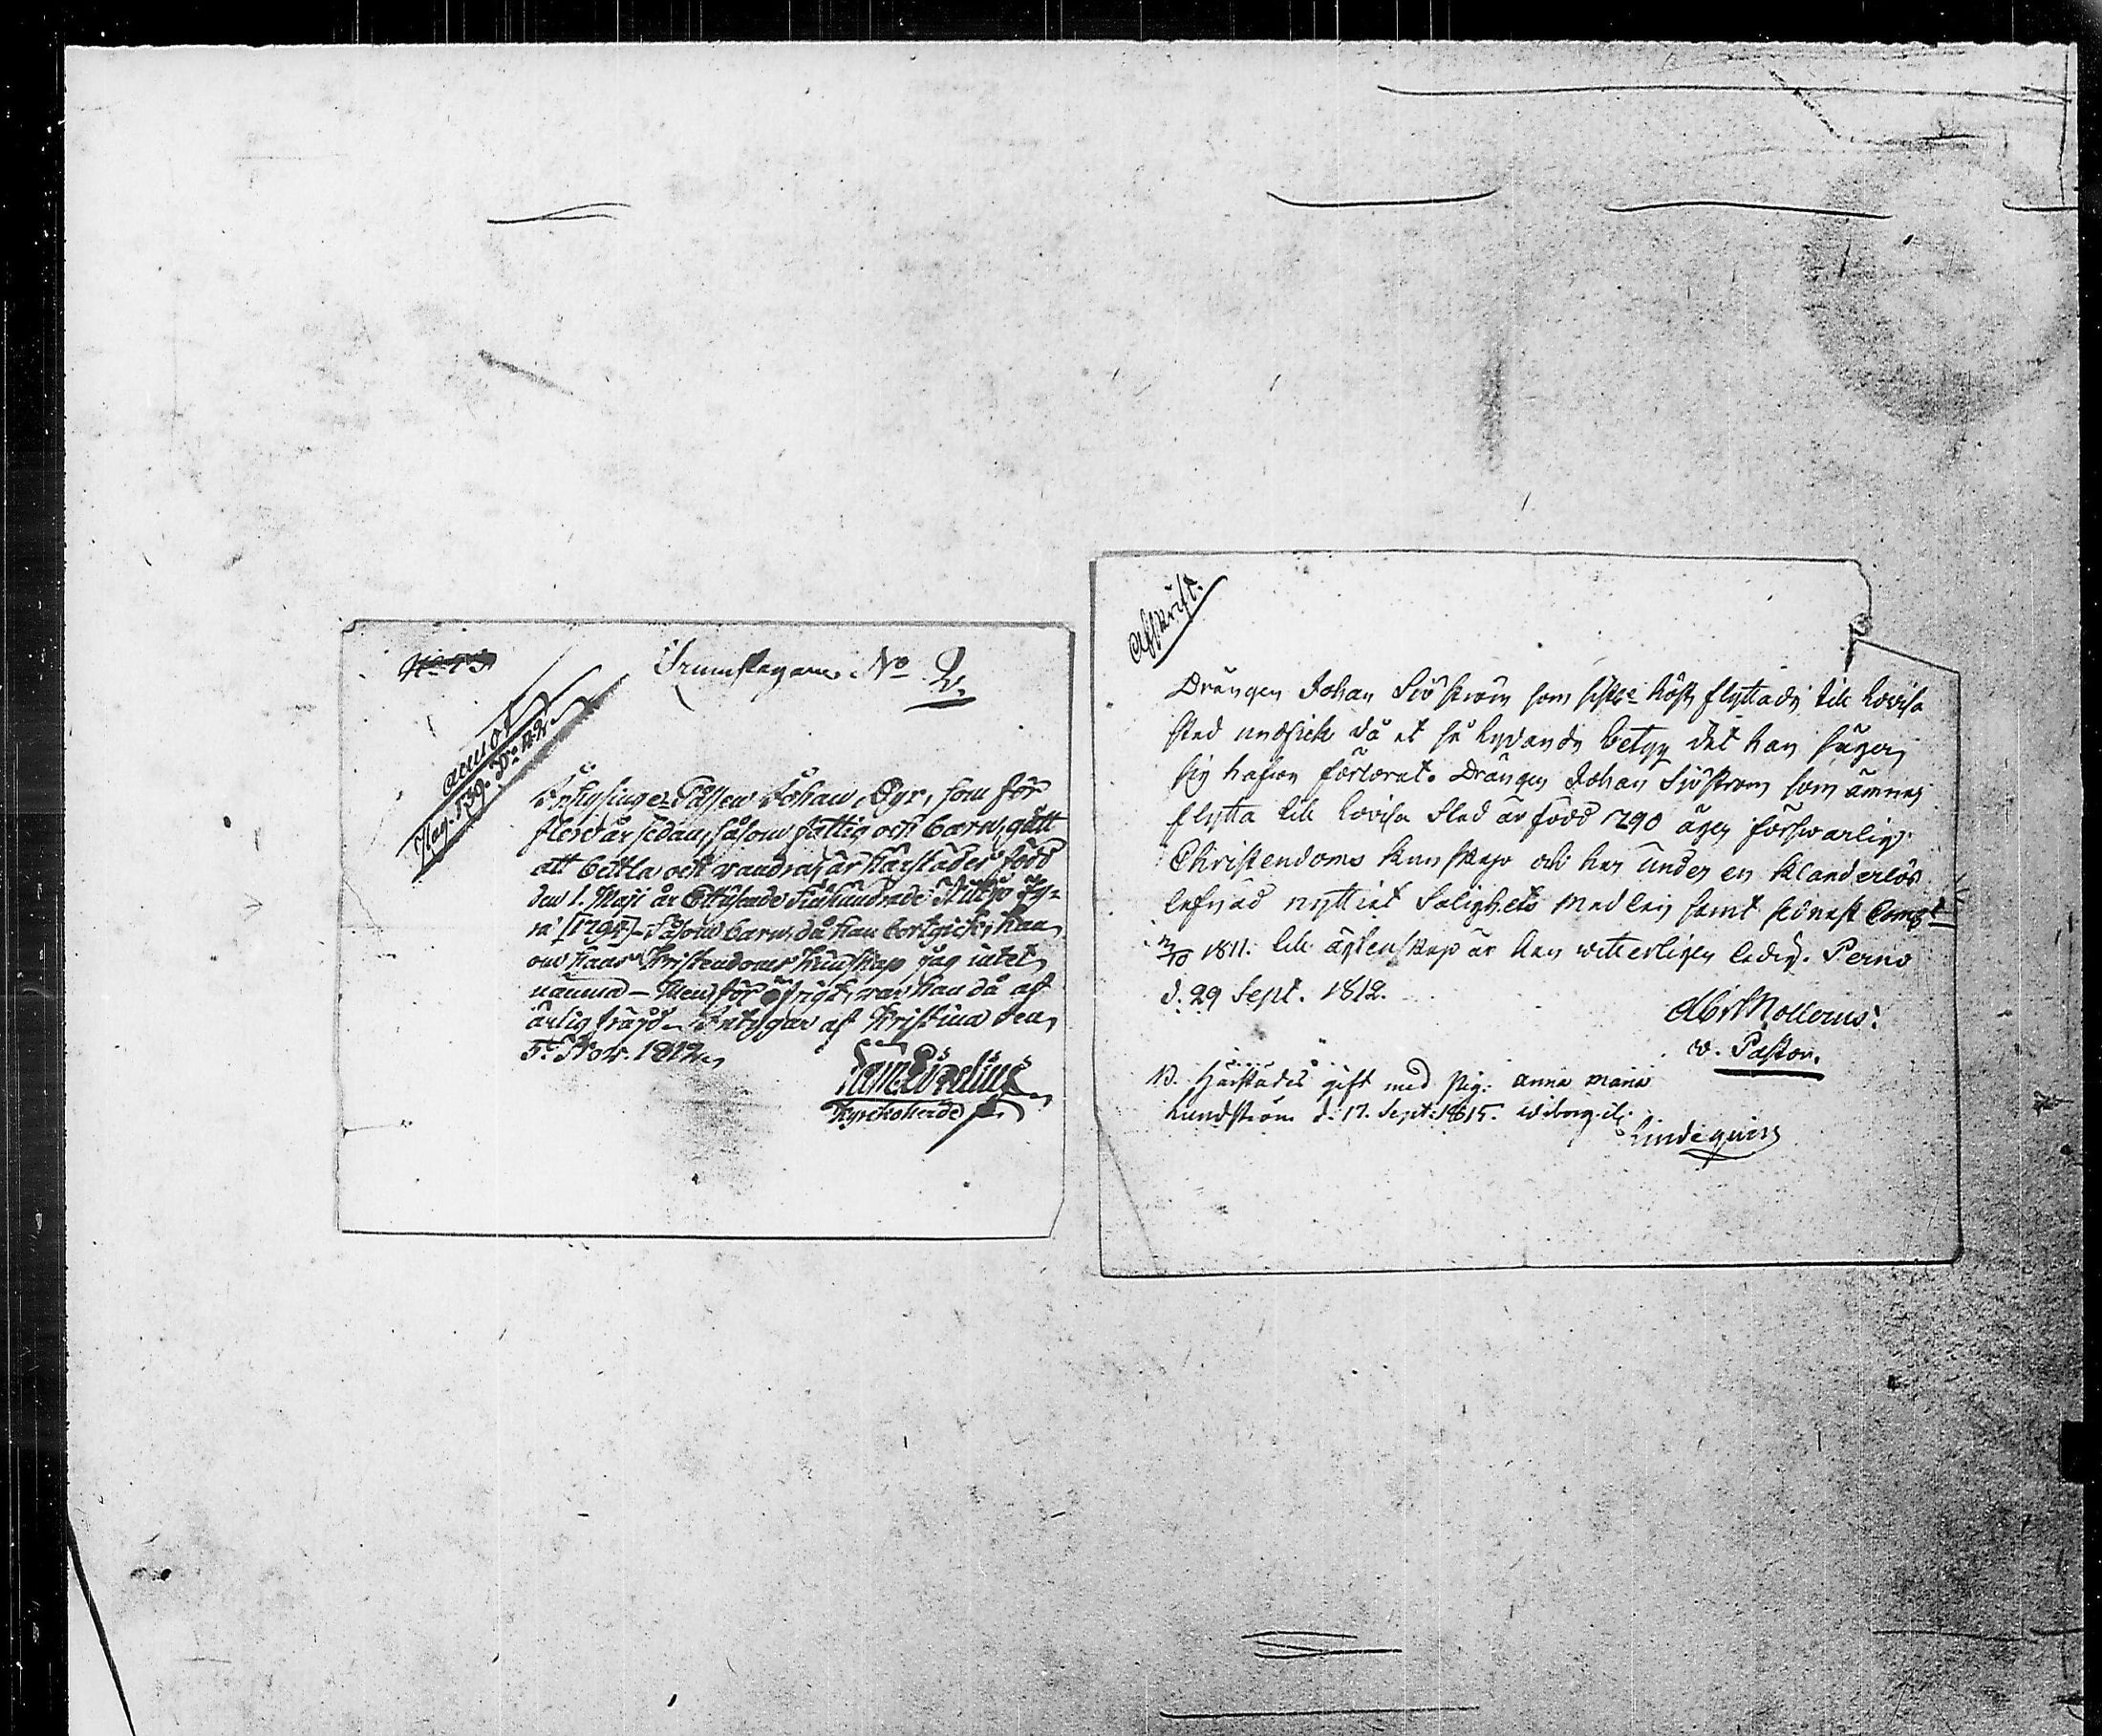 Trumslagare No 2.
Gossen Johan Dyr, som för
flere år sedan, såsom fattig och barn, gått
att betla och vandra, är härstädes född
den 1. Maji år Ettusende Sjuhundrade Nittijo Fy-
ra [1794]. Såsom barn, då han bortgick, kan
om hans Kristendoms kunskap jag intet
nämna – Men för öfrigt, var han då af
ärlig fräjd. Intygar af Kristina den
5te Nov. 1812.
Kyrckoherde
Afskrift.
Drängen Johan Sjöström som sistl. höst flyttade till Lovisa
stad undfick då et så lydande betyg det han säger
sig hafva förlorat. Drängen Johan Sjöstrom som ämnar
flytta till Lovisa Stad är född 790 äger förswarlig
Christendoms kunskap och har under en klanderlös
lefnad nyttjat Salighets Medlen samt sednast
1811. till äktenskap är han vitterligen ledig. Perno
d. 29 Sept. 1812.
v. Pastor.
Härstädes gift med Pig. Anna Maria
Lundström d. 17. Sept. 1815. Wiborg
Lindequist